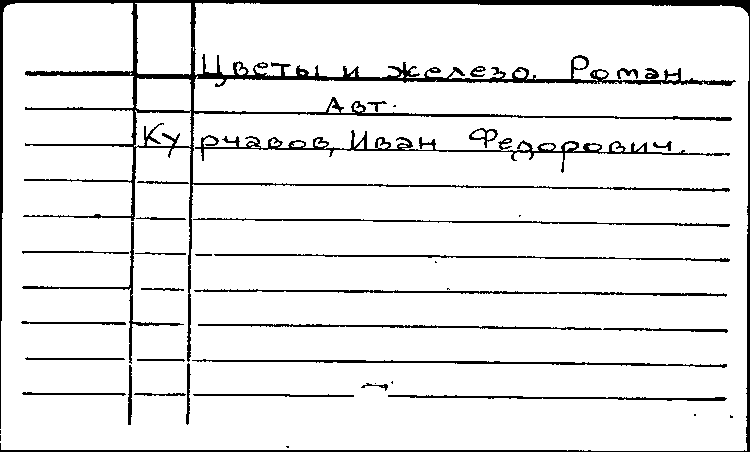 Цветы и железо. Роман.
Авт.
Курчавов, Иван Федорович.